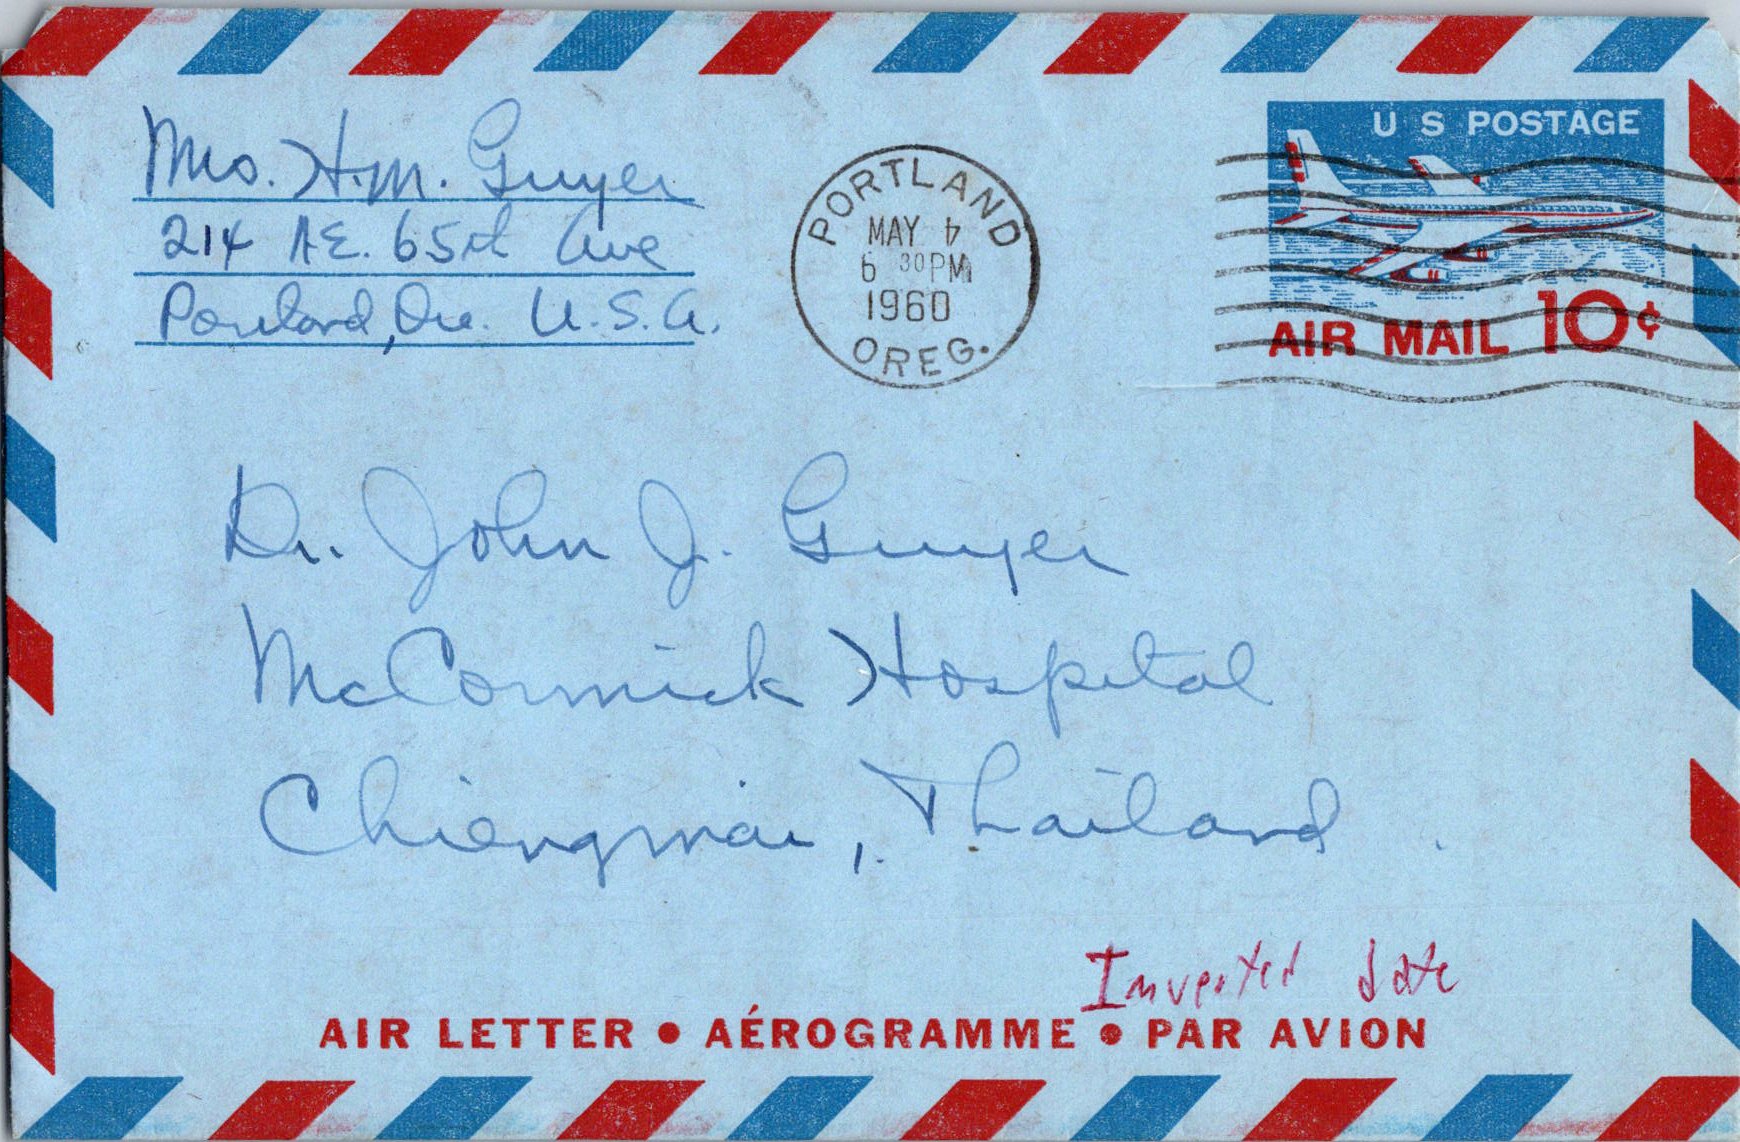 Mrs. H.M. Guyer
214 N.E. 65th Ave
Portland, Ore. U.S.A.
PORTLAND
MAY 4
6 30PM
1960
OREG.
U S POSTAGE
AIR MAIL 10¢
Dr. John J. Guyer
McCormick Hospital
Chiengmai, Thailand
Inverted date
AIR LETTER • AÉROGRAMME • PAR AVION